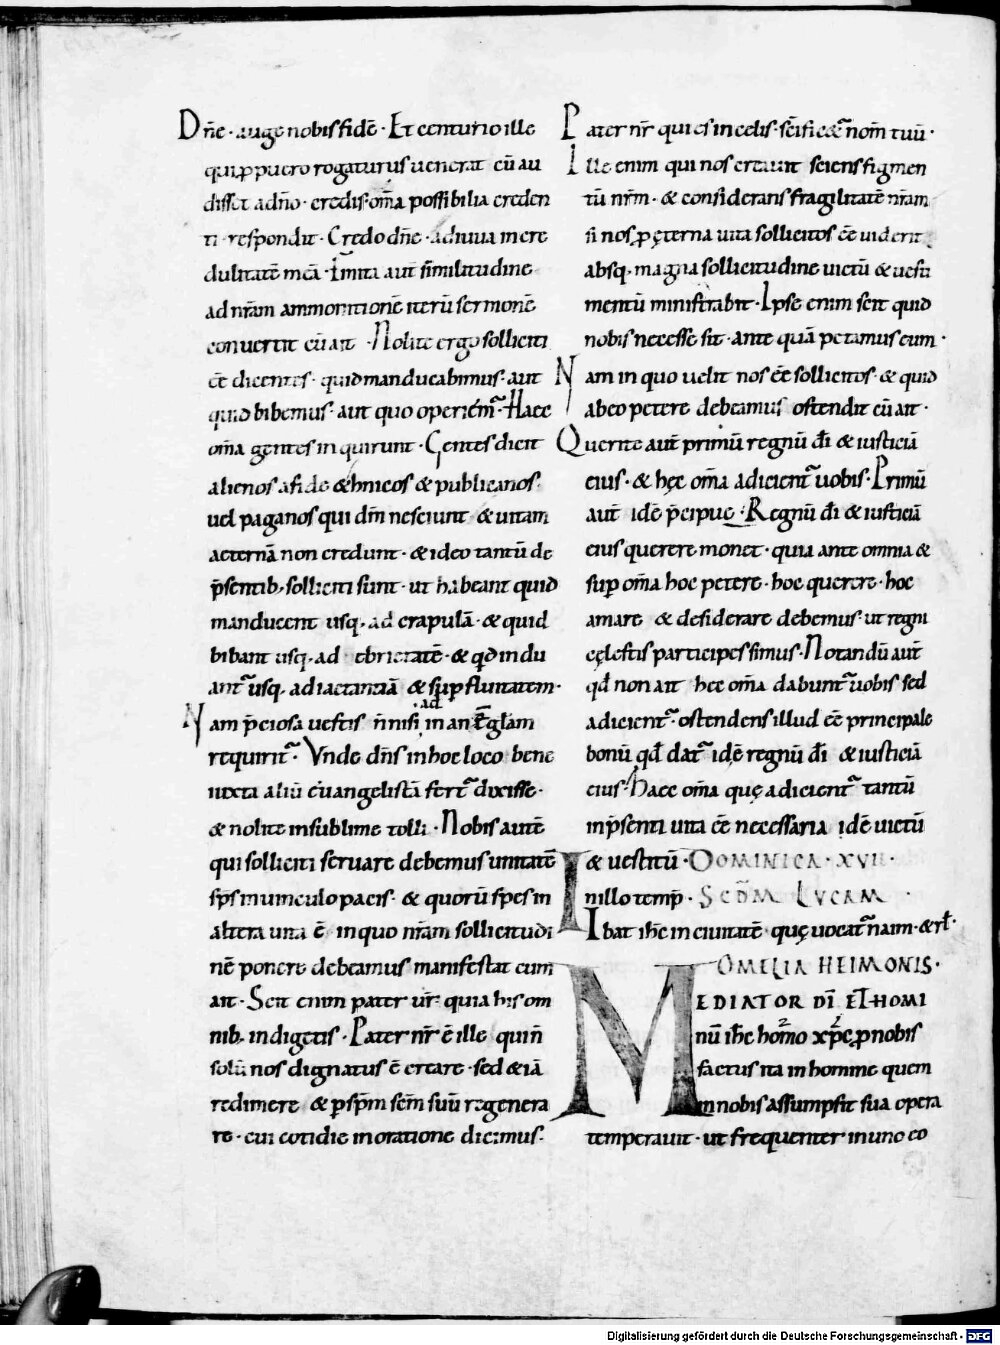 Dñe · auge nobis fidē · Et centurio ille
qui ꝓ puero rogaturus uenerat cū au
disset a dño · credis · om̄a possibilia creden
ti · respondit · Credo dñe · adiuua incre
dulitatē meā · Finita aut̄ similitudine
ad nr̄am ammonitionē iterū sermonē
conuertit cū ait · Nolite ergo solliciti
eē dicentes · quid manducabimus · aut
quid bibemus · aut quo operiem̄ · Haec
om̄a gentes inquirunt · Gentes dicit
alienos a fide & hnicos & publicanos ·
uel paganos qui dm̄ nesciunt · & uitam
aeternā non credunt · & ideo tantū de
p̄sentib; solliciti sunt · ut habeant quid
manducent usq; ad crapulā · & quid
bibant usq; ad ebrietatē · & qd̄ indu
ant᷑ usq; ad iactanciā & suꝑfluitatem ·
Nam p̄ciosa uestis n̄ nisi ·ad· in anē gl̄am
requirit᷑ · Vnde dñs in hoc loco bene
iuxta aliū euangelistā fert᷑ dixisse ·
& nolite in sublime tolli · Nobis autē
qui solliciti seruare debemus unitatē
sp̄s in uinculo pacis · & quorū spes in
altera uita ē · in quo nr̄am sollicitudi
nē ponere debeamus manifestat cum
ait · Scit enim pater ur̄ · quia his om
nib; indigetis · Pater nr̄ ē ille qui n̄
solū nos dignatus ē creare · sed & iā
redimere & ꝑ sp̄m sc̄m suū regenera
re · cui cotidie in oratione dicimus ·
Pater nr̄ qui es in celis · sc̄ificet᷑ nom̄ tuū ·
Ille enim qui nos creauit sciens figmen
tū nr̄m · & considerans fragilitatē nr̄am
si nos ꝓ ęterna uita sollicitos eē uiderit ·
absq; magna sollicitudine uictū & uesti
mentū ministrabit · Ipse enim scit quid
nobis necesse sit · ante quā petamus eum ·
Nam in quo uelit nos eē sollicitos · & quid
ab eo petere debeamus ostendit cū ait ·
Querite aut̄ primū regnū dī & iusticiā
eius · & hęc om̄a adicient᷑ uobis · Primū
aut̄ idē p̄cipue · Regnū dī & iusticiā
eius querere monet · quia ante omnia &
suꝑ om̄a hoc petere · hoc querere · hoc
amare & desiderare debemus · ut regni
cęlestis participes simus · Notandū aut̄
qd̄ non ait hec om̄a dabunt᷑ uobis sed
adicient᷑ · ostendens illud eē principale
bonū qd̄ dat᷑ idē regnū dī & iusticiā
eius · Haec om̄a quę adicient᷑ tantū
in p̄senti uita eē necessaria idē uictū
& uestitū · DOMINICA · XVII ·
In illo temp̄ · SCDM LVCAM
Ibat ih̄c in ciuitatē quę uocat᷑ naim · & rł ·
OMELIA HEIMONIS ·
MEDIATOR DĪ ET HOMI
nū ih̄c homo xp̄c ꝓ nobis
factus ita in homine quem
in nobis assumpsit sua opera
temperauit · ut frequenter in uno eo
Digitalisierung gefördert durch die Deutsche Forschungsgemeinschaft - DFG